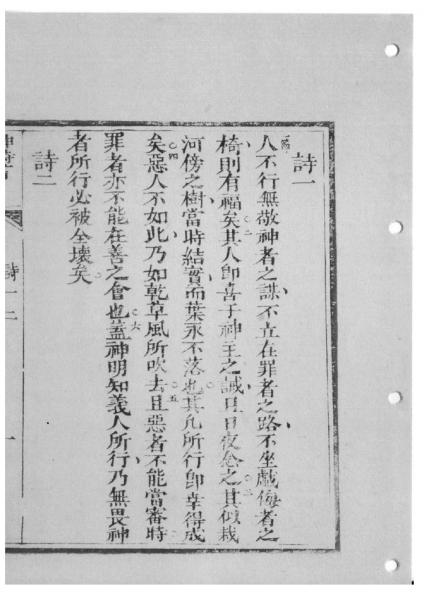 詩一
人不行無敬神者之謀不立在罪者之路不坐戲侮者之
椅則有福矣○二其人卽喜于神主之誡且日夜念之○三其似栽
河傍之樹當時結實而葉永不落也其凡所行卽幸得成
矣○四惡人不如此乃如乾草風所吹去○五且惡者不能當審時
罪者亦不能在善之會也○六蓋神明知義人所行乃無畏神
者所行必被全壞矣
詩二
詩一二
一